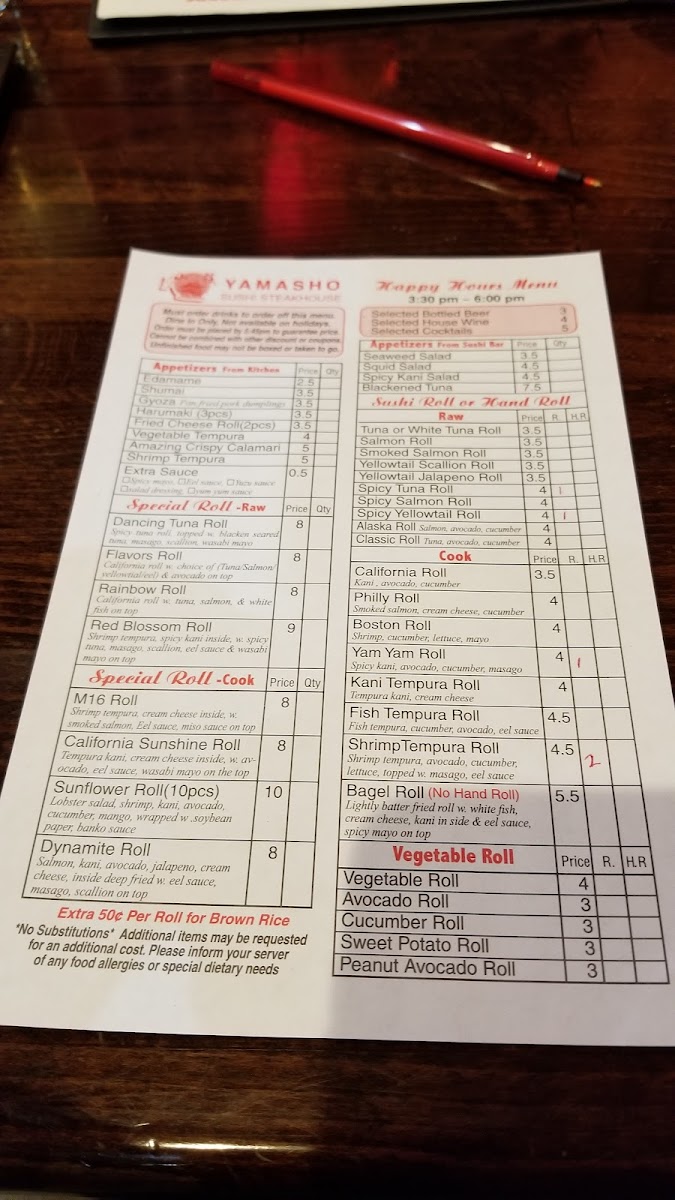 YAMASHO
SUSHI STEAKHOUSE
Must order drinks to order off this menu.
Dine in Only, Not available on holidays.
Order must be placed by 5:45pm to guarantee price.
Cannot be combined with other discount or coupons.
Unfinished food may not be boxed or taken to go.
Appetizers From Kitchen Price Qty
Edamame 2.5
Shumai 3.5
Gyoza Pan fried pork dumplings 3.5
Harumaki (3pcs) 3.5
Fried Cheese Roll(2pcs) 3.5
Vegetable Tempura 4
Amazing Crispy Calamari 5
Shrimp Tempura 5
Extra Sauce 0.5
□Spicy mayo, □Eel sauce, □Yuzu sauce
□salad dressing, □yum yum sauce
Special Roll -Raw Price Qty
Dancing Tuna Roll 8
Spicy tuna roll, topped w. blacken seared
tuna, masago, scallion, wasabi mayo
Flavors Roll 8
California roll w. choice of (Tuna/Salmon/
yellowtial/eel) & avocado on top
Rainbow Roll 8
California roll w. tuna, salmon, & white
fish on top
Red Blossom Roll 9
Shrimp tempura, spicy kani inside, w. spicy
tuna, masago, scallion, eel sauce & wasabi
mayo on top
Special Roll -Cook Price Qty
M16 Roll 8
Shrimp tempura, cream cheese inside, w.
smoked salmon, Eel sauce, miso sauce on top
California Sunshine Roll 8
Tempura kani, cream cheese inside, w. av-
ocado, eel sauce, wasabi mayo on the top
Sunflower Roll(10pcs) 10
Lobster salad, shrimp, kani, avocado,
cucumber, mango, wrapped w .soybean
paper, banko sauce
Dynamite Roll 8
Salmon, kani, avocado, jalapeno, cream
cheese, inside deep fried w. eel sauce,
masago, scallion on top
Extra 50¢ Per Roll for Brown Rice
*No Substitutions* Additional items may be requested
for an additional cost. Please inform your server
of any food allergies or special dietary needs
Happy Hours Menu
3:30 pm – 6:00 pm
Selected Bottled Beer 3
Selected House Wine 4
Selected Cocktails 5
Appetizers From Sushi Bar Price Qty
Seaweed Salad 3.5
Squid Salad 4.5
Spicy Kani Salad 4.5
Blackened Tuna 7.5
Sushi Roll or Hand Roll
Raw Price R. H.R
Tuna or White Tuna Roll 3.5
Salmon Roll 3.5
Smoked Salmon Roll 3.5
Yellowtail Scallion Roll 3.5
Yellowtail Jalapeno Roll 3.5
Spicy Tuna Roll 4 1
Spicy Salmon Roll 4
Spicy Yellowtail Roll 4 1
Alaska Roll Salmon, avocado, cucumber 4
Classic Roll Tuna, avocado, cucumber 4
Cook Price R. H.R
California Roll 3.5
Kani , avocado, cucumber
Philly Roll 4
Smoked salmon, cream cheese, cucumber
Boston Roll 4
Shrimp, cucumber, lettuce, mayo
Yam Yam Roll 4 1
Spicy kani, avocado, cucumber, masago
Kani Tempura Roll 4
Tempura kani, cream cheese
Fish Tempura Roll 4.5
Fish tempura, cucumber, avocado, eel sauce
ShrimpTempura Roll 4.5 2
Shrimp tempura, avocado, cucumber,
lettuce, topped w. masago, eel sauce
Bagel Roll (No Hand Roll) 5.5
Lightly batter fried roll w. white fish,
cream cheese, kani in side & eel sauce,
spicy mayo on top
Vegetable Roll Price R. H.R
Vegetable Roll 4
Avocado Roll 3
Cucumber Roll 3
Sweet Potato Roll 3
Peanut Avocado Roll 3